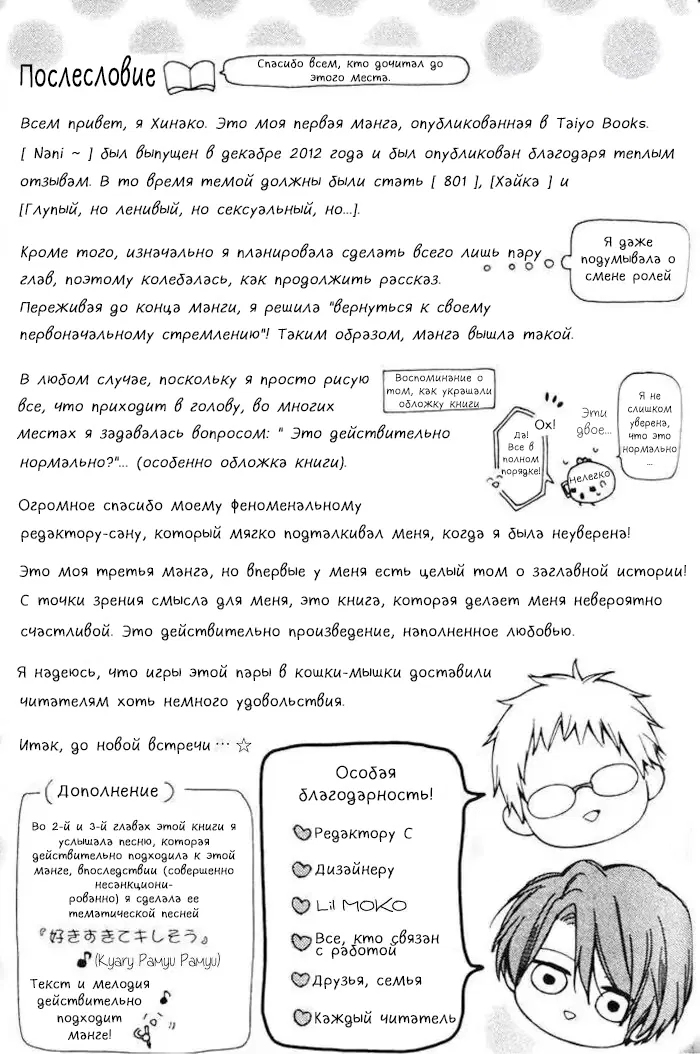 Послесловие
Спасибо всем, кто дочитал до
этого места.
Всем привет, я Хинако. Это моя первая манга, опубликованная в Taiyo Books.
[ Nani ~ ] был выпущен в декабре 2012 года и был опубликован благодаря теплым
отзывам. В то время темой должны были стать [ 801 ], [Хайка ] и
[Глупый, но ленивый, но сексуальный, но...].
Кроме того, изначально я планировала сделать всего лишь пару
глав, поэтому колебалась, как продолжить рассказ.
Переживая до конца манги, я решила "вернуться к своему
первоначальному стремлению"! Таким образом, манга вышла такой.
Я даже
подумывала о
смене ролей
В любом случае, поскольку я просто рисую
все, что приходит в голову, во многих
местах я задавалась вопросом: " Это действительно
нормально?"... (особенно обложка книги).
Воспоминание о
том, как украшали
обложку книги
Да!
Все в
полном
порядке!
Ох!
Эти
двое...
нелегко
Я не
слишком
уверена,
что это
нормально
...
Огромное спасибо моему феноменальному
редактору-сану, который мягко подталкивал меня, когда я была неуверена!
Это моя третья манга, но впервые у меня есть целый том о заглавной истории!
С точки зрения смысла для меня, это книга, которая делает меня невероятно
счастливой. Это действительно произведение, наполненное любовью.
Я надеюсь, что игры этой пары в кошки-мышки доставили
читателям хоть немного удовольствия.
Итак, до новой встречи … ☆
Дополнение
Во 2-й и 3-й главах этой книги я
услышала песню, которая
действительно подходила к этой
манге, впоследствии (совершенно
несанкциони-
рованно) я сделала ее
тематической песней
『好きすきてキしそう』
(Kyary Pamyu Pamyu)
Текст и мелодия
действительно
подходит
манге!
Особая
благодарность!
Редактору С
Дизайнеру
Lil MOKO
Все, кто связан
с работой
Друзья, семья
Каждый читатель